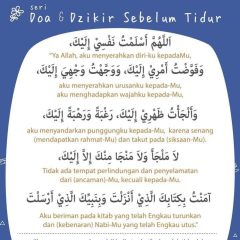 seri
Doa & Dzikir Sebelum Tidur
اَللَّهُمَّ أَسْلَمْتُ نَفْسِيْ إِلَيْكَ،
"Ya Allah, aku menyerahkan diri-ku kepadaMu,
وَفَوَّضْتُ أَمْرِيْ إِلَيْكَ، وَوَجَّهْتُ وَجْهِيَ إِلَيْكَ،
aku menyerahkan urusanku kepadaMu,
aku menghadapkan wajahku kepadaMu,
وَأَلْجَأْتُ ظَهْرِيْ إِلَيْكَ، رَغْبَةً وَرَهْبَةً إِلَيْكَ،
aku menyandarkan punggungku kepadaMu, karena senang
(mendapatkan rahmat-Mu) dan takut pada (siksaan-Mu).
لاَ مَلْجَأَ وَلاَ مَنْجَا مِنْكَ إِلاَّ إِلَيْكَ،
Tidak ada tempat perlindungan dan penyelamatan
dari (ancaman)-Mu, kecuali kepada-Mu.
آمَنْتُ بِكِتَابِكَ الَّذِيْ أَنْزَلْتَ وَبِنَبِيِّكَ الَّذِيْ أَرْسَلْتَ
Aku beriman pada kitab yang telah Engkau turunkan
dan (kebenaran) Nabi-Mu yang telah Engkau utus."